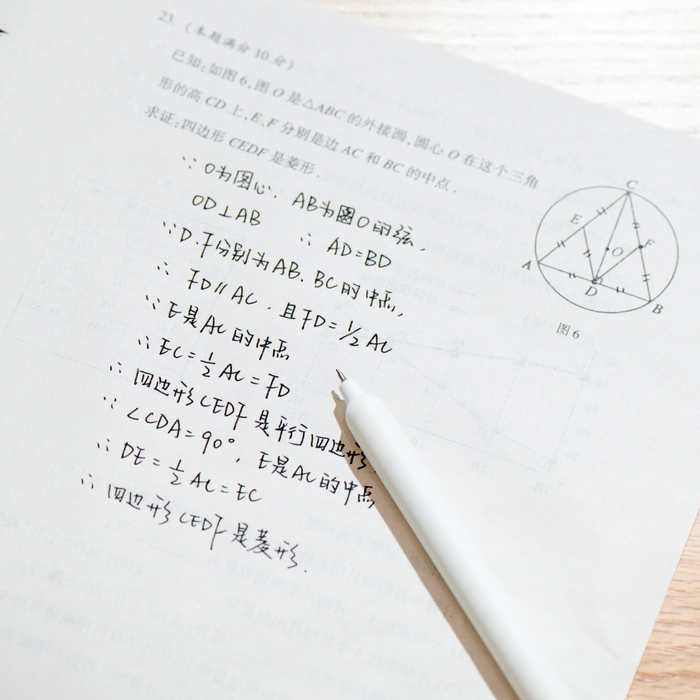 23.（本题满分 10 分）
已知:如图 6,圆 O 是△ABC 的外接圆,圆心 O 在这个三角
形的高 CD 上,E、F 分别是边 AC 和 BC 的中点.
求证:四边形 CEDF 是菱形.
∵ O为圆心. AB为圆O的弦,
OD⊥AB ∴ AD=BD
∵ D.F分别为AB.BC的中点,
∴ FD∥AC. 且FD=1/2 AC
∵ E是AC的中点
∴ EC=1/2 AC=FD
∴ 四边形CEDF是平行四边形.
∵ ∠CDA=90°, E是AC的中点
∴ DE=1/2 AC=EC
∴ 四边形CEDF是菱形.
C
E
F
O
A
D
B
图 6